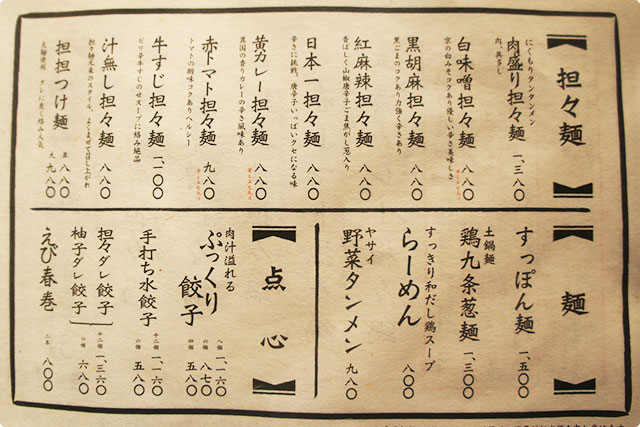 担々麺
にくもりタンタンメン
肉盛り担々麺 一、三八〇
肉、具多し
白味噌担々麺 八八〇
京の白みそコクあり優しい辛さ美味しさ
黒胡麻担々麺 八八〇
黒ごまのコクあり力強く辛さあり
紅麻辣担々麺 八八〇
香ばしく山椒唐辛子ごま焦がし葱入り
日本一担々麺 八八〇
辛さに挑戦、唐辛子いっぱいクセになる味
黄カレー担々麺 八八〇
異国の香りカレーの辛さ風味あり
赤トマト担々麺 九八〇
トマトの酸味コクありヘルシー
牛すじ担々麺 一、一〇〇
ピリ辛牛すじのせスープに絡み絶品
汁無し担々麺 八八〇
担々麺元来のスタイル、よくまぜて召し上がれ
担担つけ麺 並 八八〇
大 九八〇
太麺使用 タレに良く絡み人気
麺
すっぽん麺 一、五〇〇
土鍋麺
鶏九条葱麺 一、三〇〇
すっきり和だし鶏スープ
らーめん 八〇〇
ヤサイ
野菜タンメン 九八〇
点心
肉汁溢れる
ぷっくり餃子 八個 一、一六〇
六個 八七〇
四個 五八〇
手打ち水餃子 十二個 一、一六〇
六個 五八〇
担々ダレ餃子
柚子ダレ餃子
十二個 一、三六〇
六個 六八〇
えび春巻 二本 八〇〇